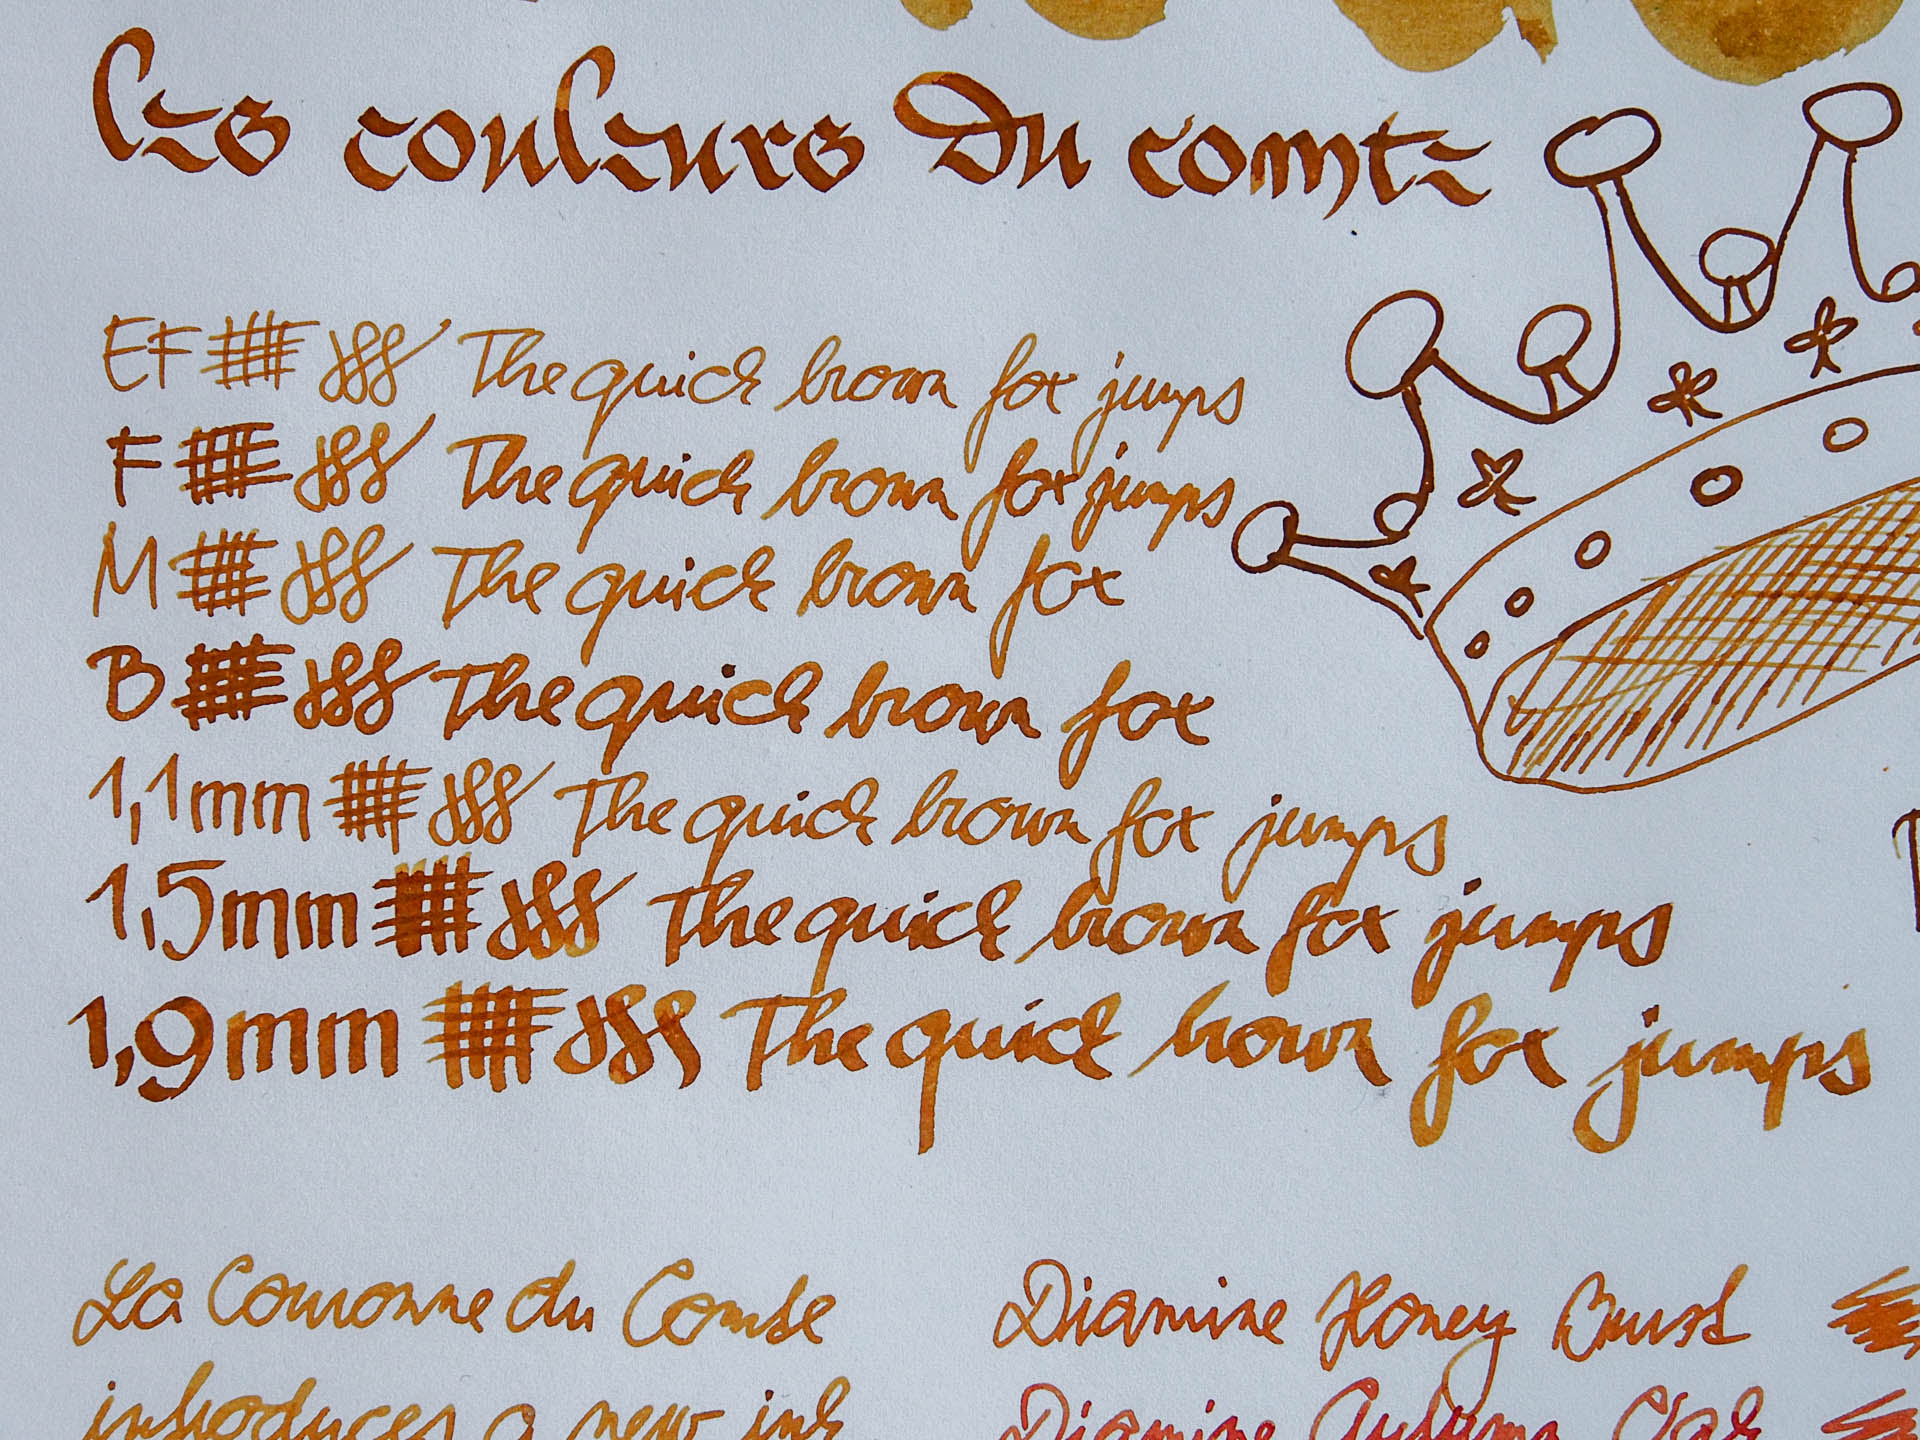 les couleurs du comte
EF The quick brown fox jumps
F The quick brown fox jumps
M The quick brown fox
B The quick brown fox
1,1mm The quick brown fox jumps
1,5mm The quick brown fox jumps
1,9mm The quick brown fox jumps
La Couronne du Comte
introduces a new ink
Diamine Honey Burst
Diamine Autumn Oak